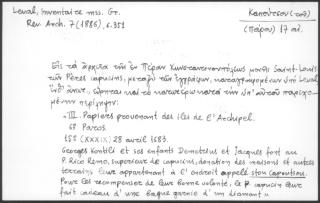 Laval, Inventaire mss. Gr. Καπούτσου (τοῦ)
Rev. Arch. 7 (1886), σ. 351 (Πάρου) 17 αἰ.
Εἰς τὰ ἀρχεῖα τῆς ἐν Πέραν Κωνσταντινουπόλεως μονῆς Saint-Louis
τῶν Pères capucins, μεταξὺ τῶν ἐγγράφων, καταγραφομένων ὑπὸ Laval
ὡς ἄνω, σῴζεται καὶ τὸ κατωτέρω κατὰ τὴν ὑπ' αὐτοῦ παρεχο-
μένην περίληψιν:
« III. Papiers provenant des iles de l'Archipel.
6º Paros.
(XXXIX) 28 avril 1683.
Georges Kontili et ses enfants Demetrius et Jacques font au
P. Rico Remo, superieur de capucins, donation des maisons et autres
terrains leur appartenant à l'endroit appelé stou Capoutsou.
Pour les recompenser de leur bonne volonté, le P. capucin leur
fait cadeau d'une bague garnie d'un diamant »